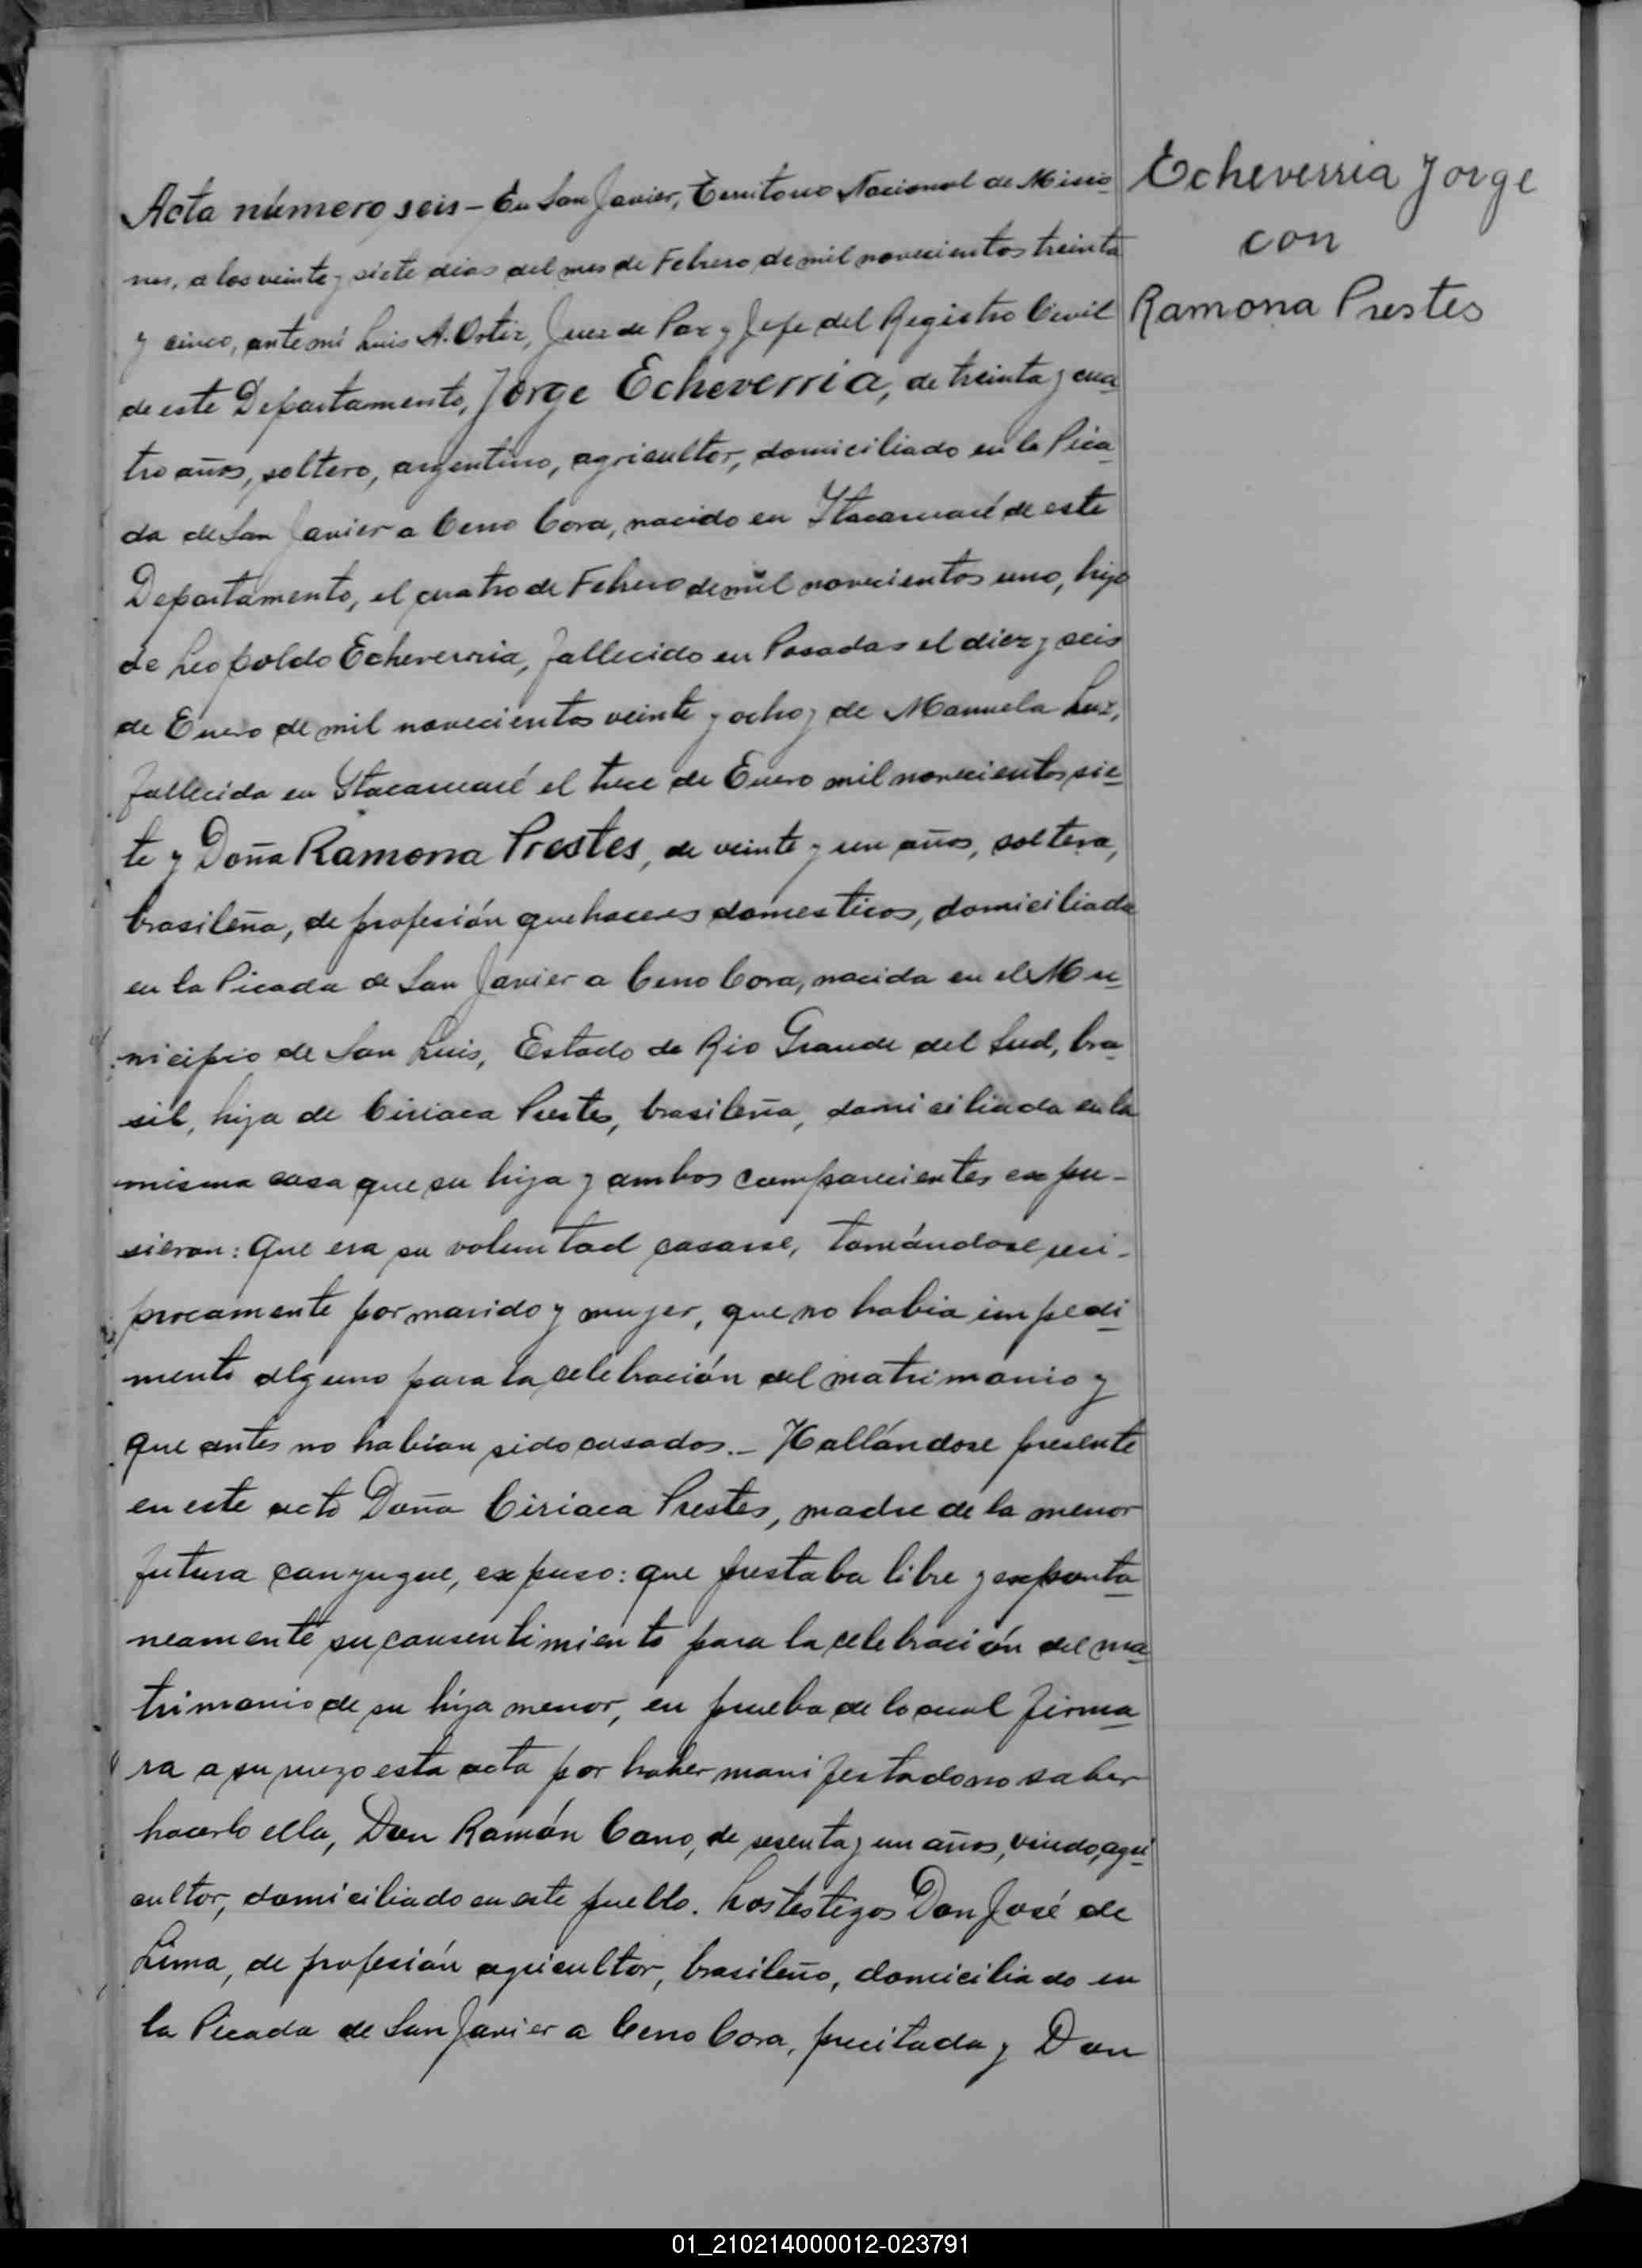 Acta número seis - En San Javier, Territorio Nacional de Misio
nes, a los veinte y siete dias del mes de Febrero de mil novecientos treinta
y cinco, ante mí Luis A. Ortiz, Juez de Paz y Jefe del Registro Civil
de este Departamento, Jorge Echeverria, de treinta y cua
tro años, soltero, argentino, agricultor, domiciliado en la Pica
da de San Javier a Cerro Cora, nacido en Itacaruaré de este
Departamento, el cuatro de Febrero de mil novecientos uno, hijo
de Leopoldo Echeverria, fallecido en Posadas el diez y seis
de Enero de mil novecientos veinte y ocho y de Manuela Luz,
fallecida en Itacaruaré el trece de Enero mil novecientos sie
te y Doña Ramona Prestes, de veinte y un años, soltera,
brasileña, de profesión quehaceres domesticos, domiciliada
en la Picada de San Javier a Cerro Cora, nacida en el Mu
nicipio de San Luis, Estado de Rio Grande del Sud, bra
sil, hija de Ciriaca Prestes, brasileña, domiciliada en la
misma casa que su hija y ambos comparecientes expu-
sieron: Que era su voluntad casarse, tomándose reci-
procamente por marido y mujer, que no habia impedi
mento alguno para la celebración del matrimonio y
que antes no habian sido casados.- Hallándose presente
en este acto Doña Ciriaca Prestes, madre de la menor
futura conyugue, expuso: que prestaba libre y exponta
neamente su consentimiento para la celebración del ma
trimonio de su hija menor, en prueba de lo cual firma
ra a su ruego esta acta por haber manifestado no saber
hacerlo ella, Don Ramón Cano, de sesenta y un años, viudo, agri
cultor, domiciliado en este pueblo. Los testigos Don José de
Lima, de profesión agricultor, brasileño, domiciliado en
la Picada de San Javier a Cerro Cora, precitada y Don
Echeverria Jorge
con
Ramona Prestes
01_210214000012-023791